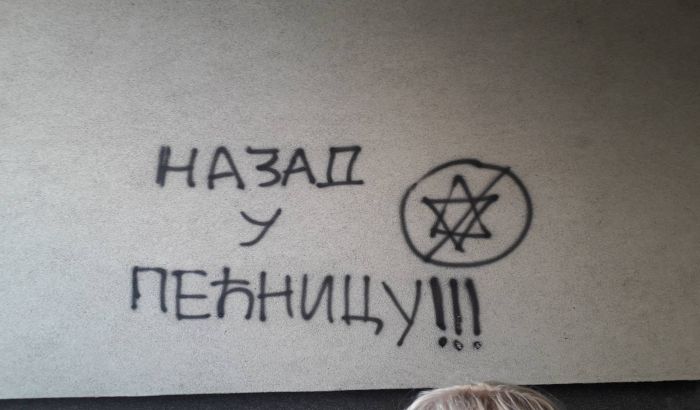 НАЗАД
У
ПЕЋНИЦУ!!!